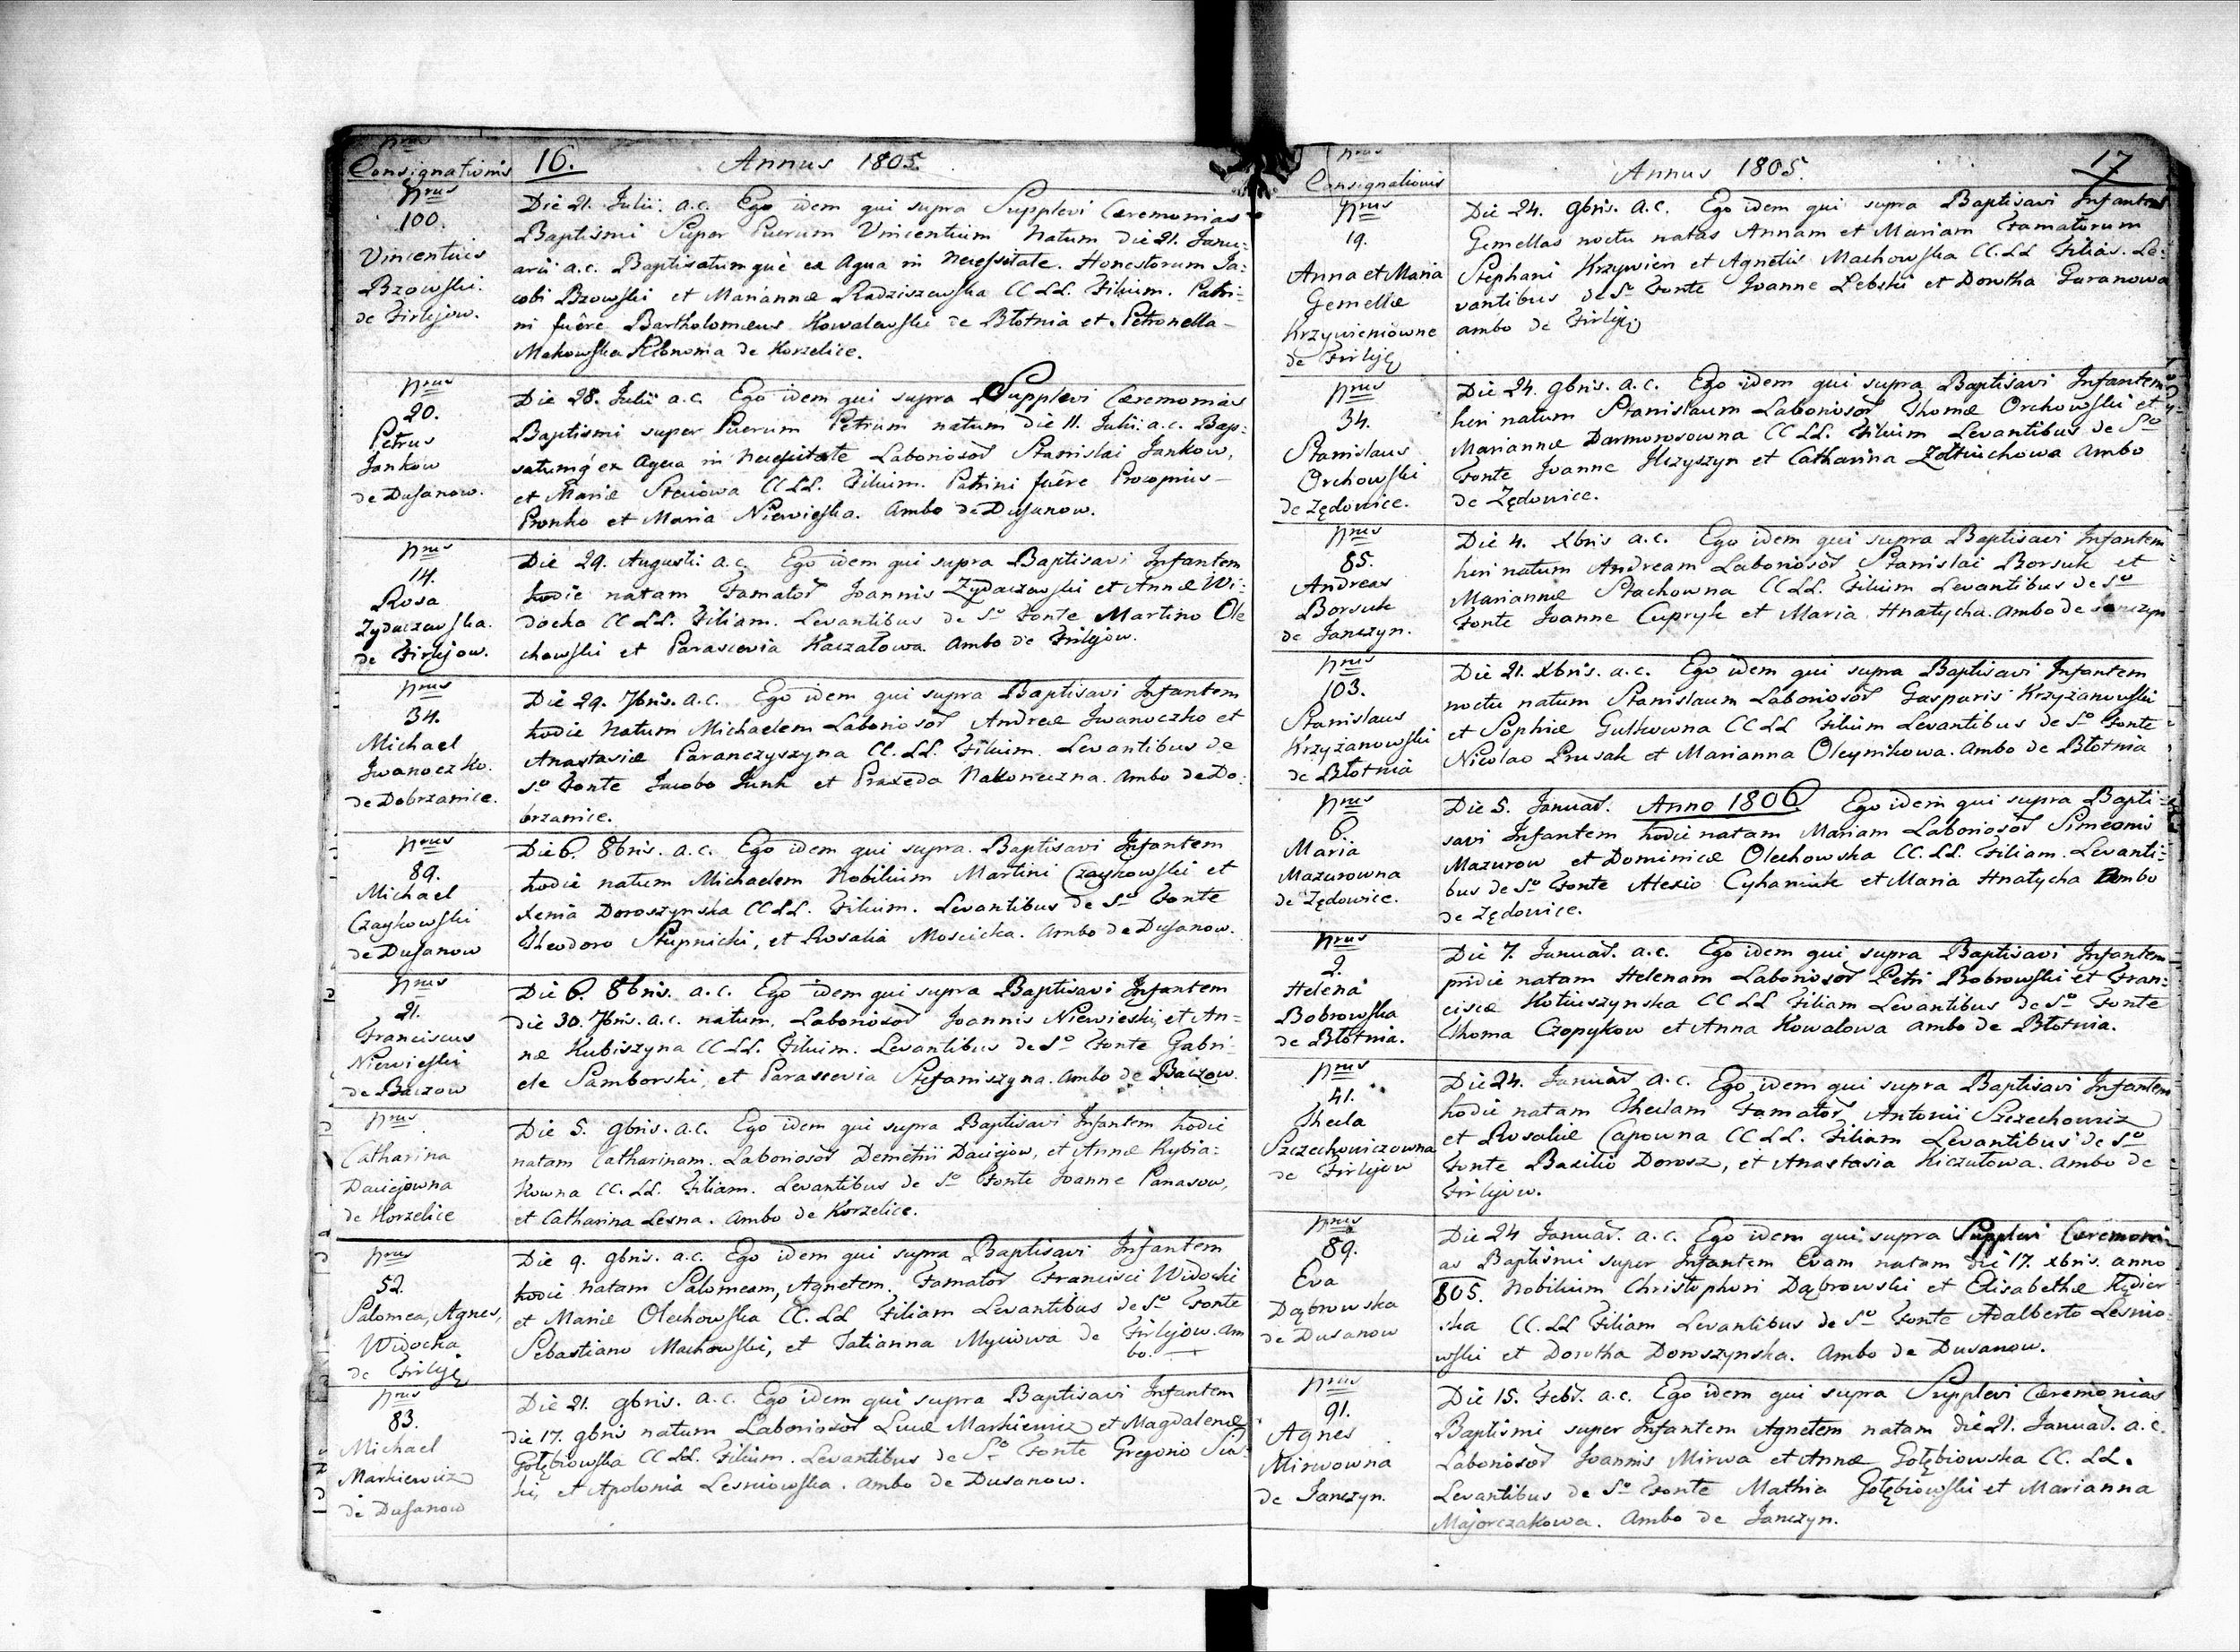 Nrus
Consignationis
16.
Annus 1805.
Nrus
100.
Vincentius
Bzowski.
de Firlejow.
Die 21. Julii. a.c. Ego idem qui supra Supplevi Ceremonias
Baptismi Super Puerum Vincentium Natum die 21. Janu:
arii a.c. Baptisatumque ex Aqua in Necessitate. Honestorum Ja:
cobi Bzowski et Mariannæ Radziszewska CC LL. Filium. Patri:
ni fuêre Bartholomæus Kowalewski de Błotnia et Petronella
Makowska Æconoma de Korzelice.
Nrus
20.
Petrus
Jankow
de Dusanow.
Die 28. Julii a.c. Ego idem qui supra Supplevi Ceremonias
Baptismi super Puerum Petrum natum die 11. Julii. a.c. Bap:
satumq' ex Aqua in Necessitate Laboriosor Stanislai Jankow,
et Mariæ Steciowa CC LL. Filium. Patrini fuêre Procopius
Pronko et Maria Niewieska. Ambo de Dusanow.
Nrus
14.
Rosa
Zydaczewska.
de Firlejow.
Die 29. Augusti. a.c. Ego idem qui supra Baptisavi Infantem
hodie natam Famator Joannis Zydaczewski et Annæ Wi:
docka CC LL. Filiam. Levantibus de So Fonte Martino Ole
chowski et Parascevia Kaczałowa. Ambo de Firlejow.
Nrus
34.
Michael
Jwanoczko.
de Dobrzanice.
Die 29. 7bris. a.c. Ego idem qui supra Baptisavi Infantem
hodie Natum Michaelem Laboriosor Andreæ Jwanoczko et
Anastasiæ Paranczyszyna CC. LL. Filium. Levantibus de
So Fonte Jacobo Junk et Praxeda Nakoneczna. Ambo de Do:
brzanice.
Nrus
89.
Michael
Czaykowski
de Dusanow
Die 6. 8bris. a.c. Ego idem qui supra. Baptisavi Infantem
hodie natum Michaelem Nobilium Martini Czaykowski et
Xenia Doroszynska CC LL. Filium. Levantibus de So Fonte
Theodoro Stupnicki, et Rosalia Moscicka. Ambo de Dusanow.
Nrus
21.
Franciscus
Niewieski
de Baczow
Die 6. 8bris. a.c. Ego idem qui supra Baptisavi Infantem
die 30. 7bris. a.c. natum. Laboriosor Joannis Niewieski, et An=
næ Kubiszyna CC LL. Filium. Levantibus de So Fonte Gabri:
ele Samborski, et Parascevia Stefaniszyna. Ambo de Baczow.
Nrus
Catharina
Daciejowna
de Korzelice
Die 5. 9bris. a.c. Ego idem qui supra Baptisavi Infantem hodie
natam Catharinam. Laboriosor Demetrii Daciejow, et Annæ Rybia:
kowna CC. LL. Filiam. Levantibus de So Fonte Joanne Panasow,
et Catharina Lesna. Ambo de Korzelice.
Nrus
52.
Salomea, Agnes,
Widocka
de Firleję
Die 9. 9bris. a.c. Ego idem qui supra Baptisavi Infantem
hodie natam Salomeam, Agnetem. Famator Francisci Widocki
et Mariæ Olechowska CC. LL Filiam Levantibus de So Fonte
Sebastiano Machowski, et Tatianna Myciowa de Firlejow. Am
bo.
Nrus
83.
Michael
Markiewicz
de Dusanow
Die 21. 9bris. a.c. Ego idem qui supra Baptisavi Infantem
die 17. 9bris natum Laboriosor Lucæ Markiewicz et Magdalenæ
Gołębiowska CC LL. Filium. Levantibus de So Fonte Gregorio
et Apolonia Lesniowska. Ambo de Dusanow.
Nrus
Consignationis
Annus 1805.
17
Nrus
19.
Anna et Maria
Gemellæ
Krzywieniowne
de Firleję
Die 24. 9bris. a.c. Ego idem qui supra Baptisavi Infantes
Gemellas noctu natas Annam et Mariam Famatorum
Stephani Krzywien et Agnetis Machowska CC. LL Filias. Le:
vantibus de So Fonte Joanne Lebski et Dorotha Garanowa
ambo de Firleję
Nrus
34.
Stanislaus
Orchowski
de Zędowice.
Die 24. 9bris. a.c. Ego idem qui supra Baptisavi Infantem
heri natum Stanislaum Laboriosor Thomæ Orchowski et
Mariannæ Darmorosowna CC LL. Filium Levantibus de So
Fonte Joanne Ilczyszyn et Catharina Zołtuchowa Ambo
de Zędowice.
Nrus
85.
Andreas
Borsuk
de Janczyn.
Die 4. Xbris a.c. Ego idem qui supra Baptisavi Infantem
heri natum Andream Laboriosor Stanislai Borsuk et
Mariannæ Stachowna CC LL. Filium Levantibus de So
Fonte Joanne Cupryk et Maria Hnatycha. Ambo de Janczyn
Nrus
103.
Stanislaus
Krzyżanowski
de Błotnia
Die 21. Xbris. a.c. Ego idem qui supra Baptisavi Infantem
noctu natum Stanislaum Laboriosor Gasparis Krzyżanowski
et Sophiæ Gutkowna CC LL Filium Levantibus de So Fonte
Nicolao Prusak et Marianna Oleynikowa. Ambo de Błotnia
Nrus
6.
Maria
Mazurowna
de Zędowice.
Die 5. Januar. Anno 1806 Ego idem qui supra Bapti:
savi Infantem hodie natam Mariam Laboriosor Simeonis
Mazurow et Dominicæ Olechowska CC. LL. Filiam. Levanti:
bus de So Fonte Alexio Cyhaniuk et Maria Hnatycha Ambo
de Zędowice.
Nrus
2.
Helena
Bobrowska
de Błotnia.
Die 7. Januar. a.c. Ego idem qui supra Baptisavi Infantem
pridie natam Helenam Laboriosor Petri Bobrowski et Fran:
ciscæ Kotiuszynska CC LL Filiam Levantibus de So Fonte
Thoma Czopykow et Anna Kowalowa Ambo de Błotnia.
Nrus
41.
Thecla
Szczechowiczowna
de Firlejow
Die 24. Januar a.c. Ego idem qui supra Baptisavi Infantem
hodie natam Theclam Famator Antonii Szczechowicz
et Rosaliæ Capowna CC LL. Filiam Levantibus de So
Fonte Basilio Dorosz, et Anastasia Kiczułowa. Ambo de
Firlejow.
Nrus
89.
Eva
Dąbrowska
de Dusanow
Die 24 Januar. a.c. Ego idem qui supra Supplevi Ceremoni
as Baptismi super Infantem Evam natam die 17. Xbris. anno
805. Nobilium Christophori Dąbrowski et Elisabethæ
CC. LL Filiam Levantibus de So Fonte Adalberto Lesnio:
wski et Dorotha Doroszynska. Ambo de Dusanow.
Nrus
91.
Agnes
Mirwowna
de Janczyn.
Die 15. Febr. a.c. Ego idem qui supra Supplevi Ceremonias
Baptismi super Infantem Agnetem natam die 21. Januar. a.c.
Laboriosor Joannis Mirwa et Annæ Gołębiowska CC. LL.
Levantibus de So Fonte Mathia Gołębiowski et Marianna
Majorczakowa. Ambo de Janczyn.